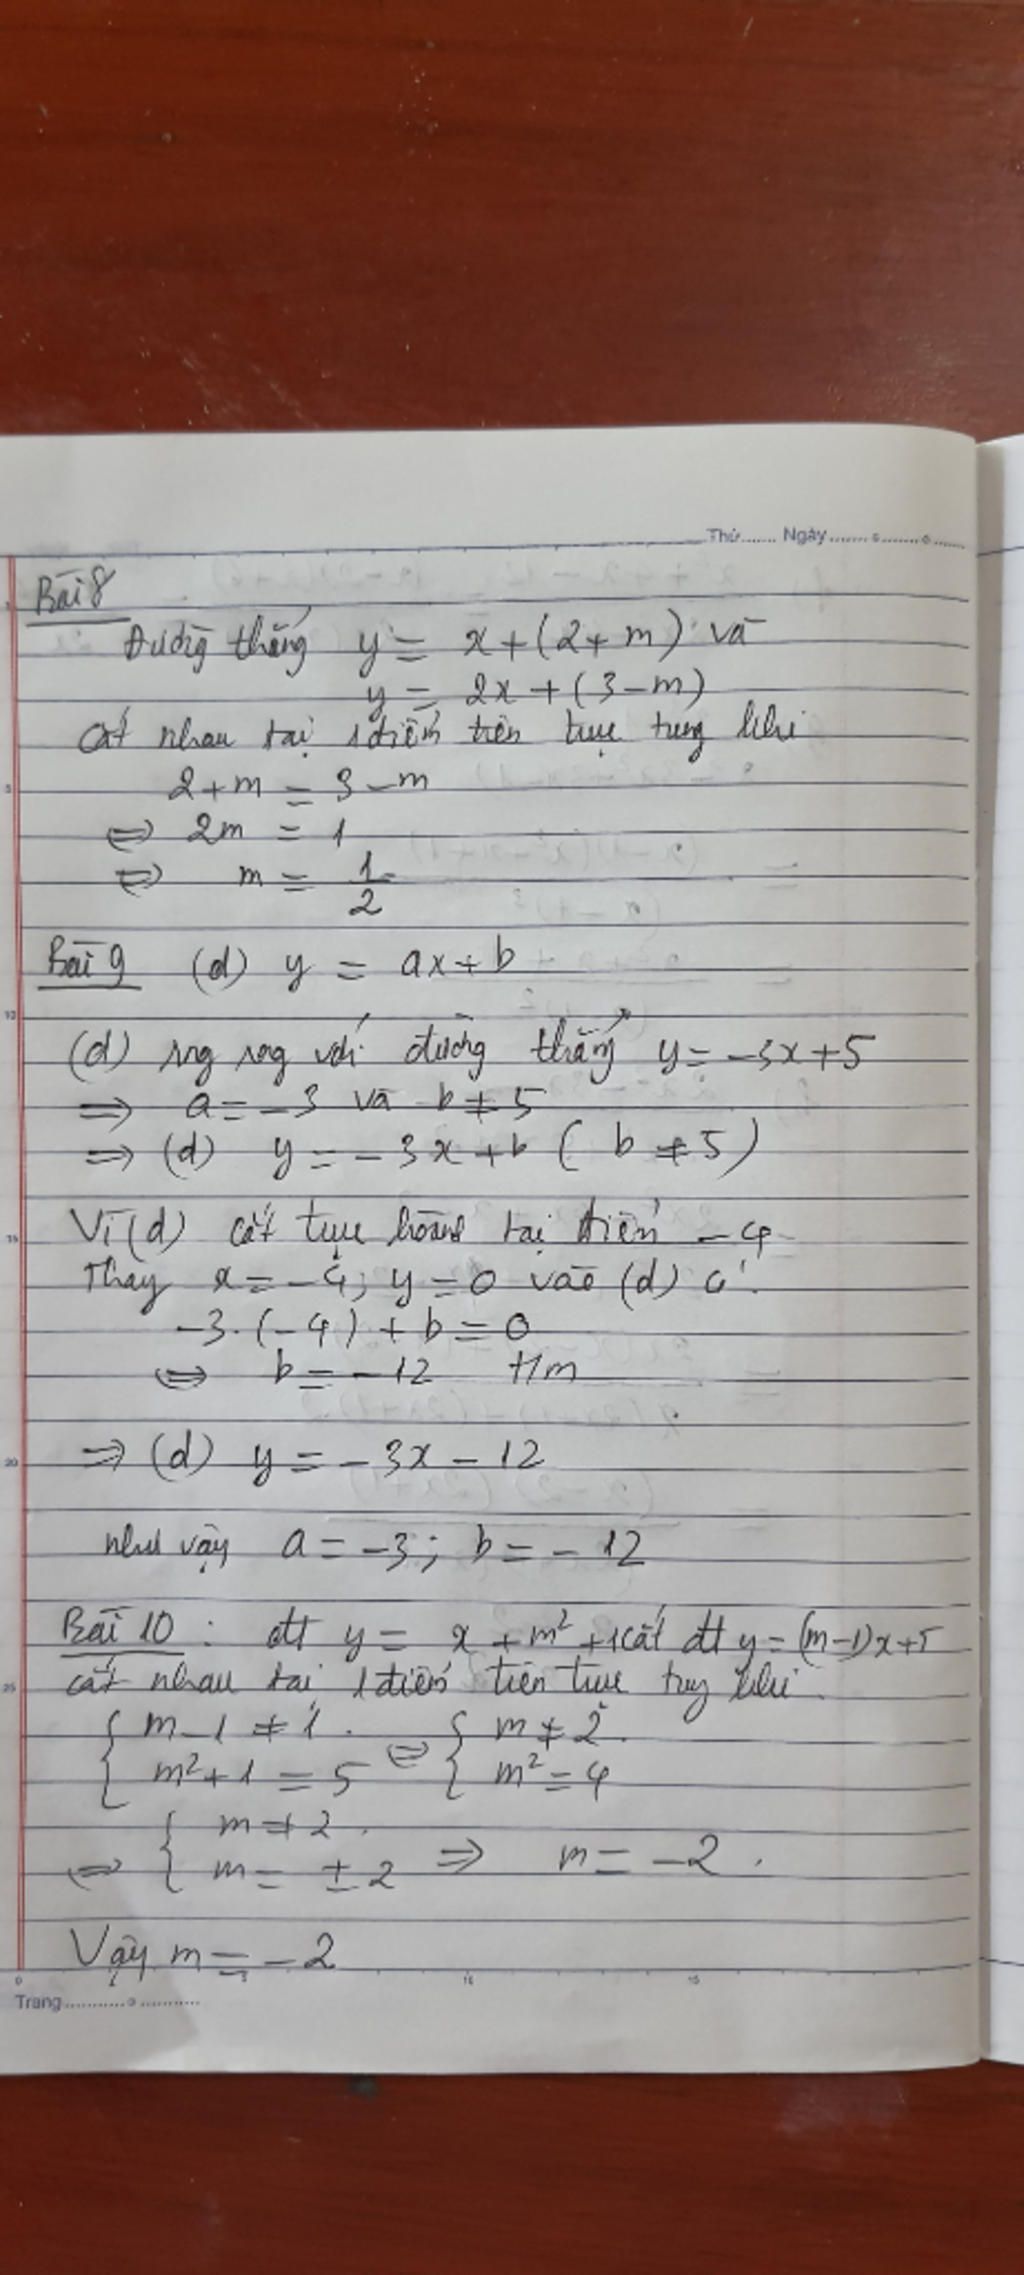 Thứ....... Ngày....... s ....... o .....
Bài 8
Đường thẳng y = x + (2 + m) và
y = 2x + (3 - m)
cắt nhau tại 1 điểm trên trục tung khi
2 + m = 3 - m
⇔ 2m = 1
⇔ m = 1/2
Bài 9 (d) y = ax + b
(d) sng sog với đường thẳng y = -3x + 5
⇒ a = -3 và b ≠ 5
⇒ (d) y = -3x + b ( b ≠ 5)
Vì (d) cắt trục hoành tại điểm -4
Thay x = -4; y = 0 vào (d) có:
-3.(-4) + b = 0
⇔ b = -12 t/m
⇒ (d) y = -3x - 12
như vậy a = -3; b = -12
Bài 10 : đt y = x + m² + 1 cắt đt y = (m-1)x + 5
cắt nhau tại 1 điểm trên trục tung khi
{ m - 1 ≠ 1 ⇔ { m ≠ 2
{ m² + 1 = 5 { m² = 4
{ m ≠ 2
⇔ { m = ±2 ⇒ m = -2.
Vậy m = -2
Trang............